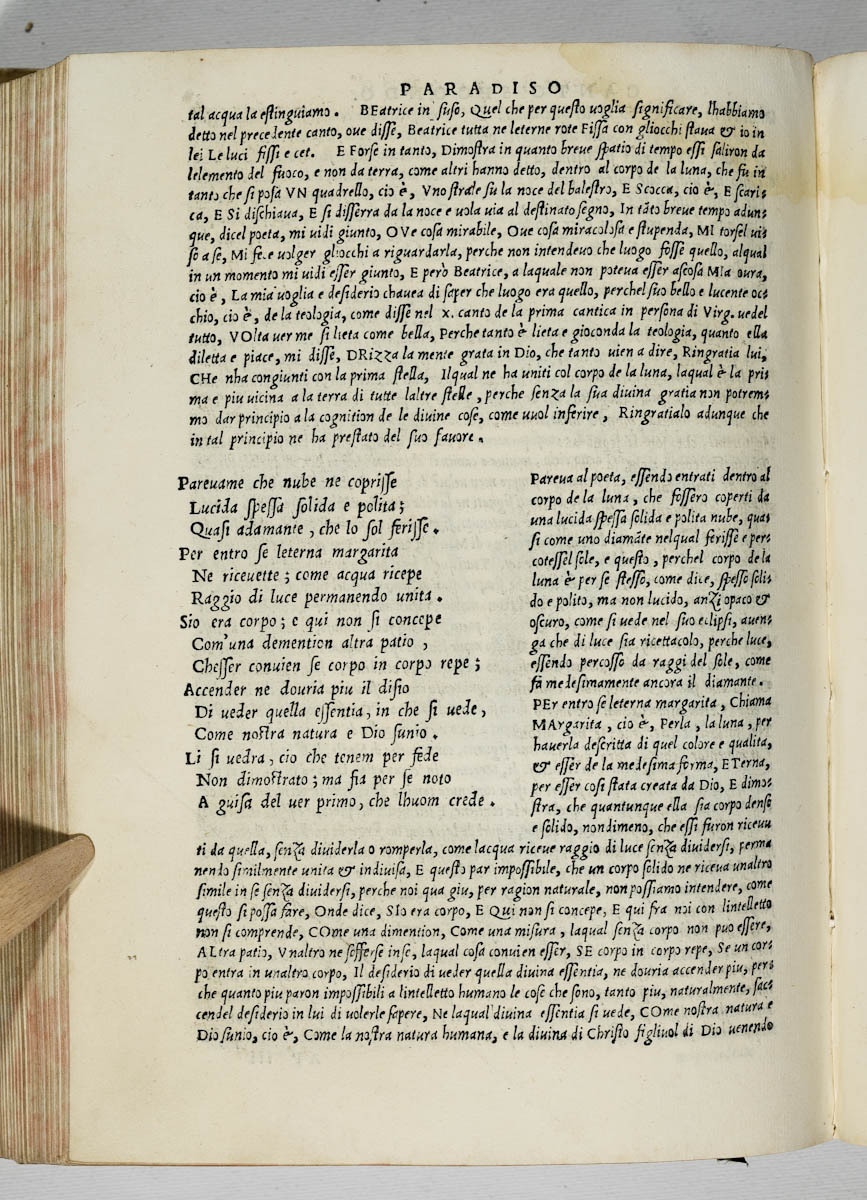 PARADISO
tal acqua la estinguiamo. BEatrice in suso, Quel che per questo uoglia significare, lhabbiamo
detto nel precedente canto, oue disse, Beatrice tutta ne leterne rote Fissa con gliocchi staua & io in
lei Le luci fissi e cet. E Forse in tanto, Dimostra in quanto breue spatio di tempo essi saliron da
lelemento del fuoco, e non da terra, come altri hanno detto, dentro al corpo de la luna, che fu in
tanto che si posa VN quadrello, cio è, Vno strale su la noce del balestro, E Scocca, cio è, E scaris
ca, E SI dischiaua, E si disserra da la noce e uola uia al destinato segno, In tãto breue tempo adun:
que, dicel poeta, mi uidi giunto, OVe cosa mirabile, Oue cosa miracolosa e stupenda, MI torsel uis
so a se, Mi fece uolger gliocchi a riguardarla, perche non intendeuo che luogo fosse quello, alqual
in un momento mi uidi esser giunto, E però Beatrice, a laquale non poteua esser ascosa MIa oura,
cio è, La mia uoglia e desiderio chauea di saper che luogo era quello, perchel suo bello e lucente oc:
chio, cio è, de la teologia, come disse nel x. canto de la prima cantica in persona di Virg. uedel
tutto, VOlta uer me si lieta come bella, Perche tanto è lieta e gioconda la teologia, quanto ella
diletta e piace, mi disse, DRizza la mente grata in Dio, che tanto uien a dire, Ringratia lui,
CHe nha congiunti con la prima stella, Ilqual ne ha uniti col corpo de la luna, laqual è la pri:
ma e piu uicina a la terra di tutte laltre stelle, perche senza la sua diuina gratia non potrem:
mo dar principio a la cognition de le diuine cose, come uuol inferire, Ringratialo adunque che
in tal principio ne ha prestato del suo fauore.
Pareuame che nube ne coprisse
Lucida spessa solida e polita;
Quasi adamante, che lo sol ferisse.
Per entro se leterna margarita
Ne riceuette; come acqua ricepe
Raggio di luce permanendo unita.
Sio era corpo; e qui non si concepe
Com'una demention altra patio,
Chesser conuien se corpo in corpo repe;
Accender ne douria piu il disio
Di ueder quella essentia, in che si uede,
Come nostra natura e Dio sunio.
Li si uedra, cio che tenem per fede
Non dimostrato; ma fia per se noto
A guisa del uer primo, che lhuom crede.
Pareua al poeta, essendo entrati dentro al
corpo de la luna, che fossero coperti da
una lucida spessa solida e polita nube, qua:
si come uno diamãte nelqual ferisse e per:
cotessel sole, e questo, perchel corpo de la
luna è per se stesso, come dice, spesso soli:
do e polito, ma non lucido, anzi opaco &
oscuro, come si uede nel suo eclipsi, auen:
ga che di luce sia ricettacolo, perche luce,
essendo percosso da raggi del sole, come
fa medesimamente ancora il diamante.
PEr entro se leterna margarita, Chiama
MArgarita, cio è, Perla, la luna, per
hauerla descritta di quel colore e qualita,
& esser de la medesima forma, ETerna,
per esser cosi stata creata da Dio, E dimo:
stra, che quantunque ella sia corpo denso
e solido, nondimeno, che essi furon riceuu
ti da quella, senza diuiderla o romperla, come lacqua riceue raggio di luce senza diuidersi, perma
nendo similmente unita & indiuisa, E questo par impossibile, che un corpo solido ne riceua unaltro
simile in se senza diuidersi, perche noi qua giu, per ragion naturale, non possiamo intendere, come
questo si possa fare, Onde dice, SIo era corpo, E QUi non si concepe, E qui fra noi con lintelletto
non si comprende, COme una dimention, Come una misura, laqual senza corpo non puo essere,
ALtra patio, Vnaltro ne sofferse in se, laqual cosa conuien esser, SE corpo in corpo repe, Se un cor:
po entra in unaltro corpo, Il desiderio di ueder quella diuina essentia, ne douria accender piu, per:
che quanto piu paron impossibili a lintelletto humano le cose che sono, tanto piu, naturalmente, sac:
cendel desiderio in lui di uolerle sapere, Ne laqual diuina essentia si uede, COme nostra natura e
Dio sunio, cio è, Come la nostra natura humana, e la diuina di Christo figliuol di Dio uenendo